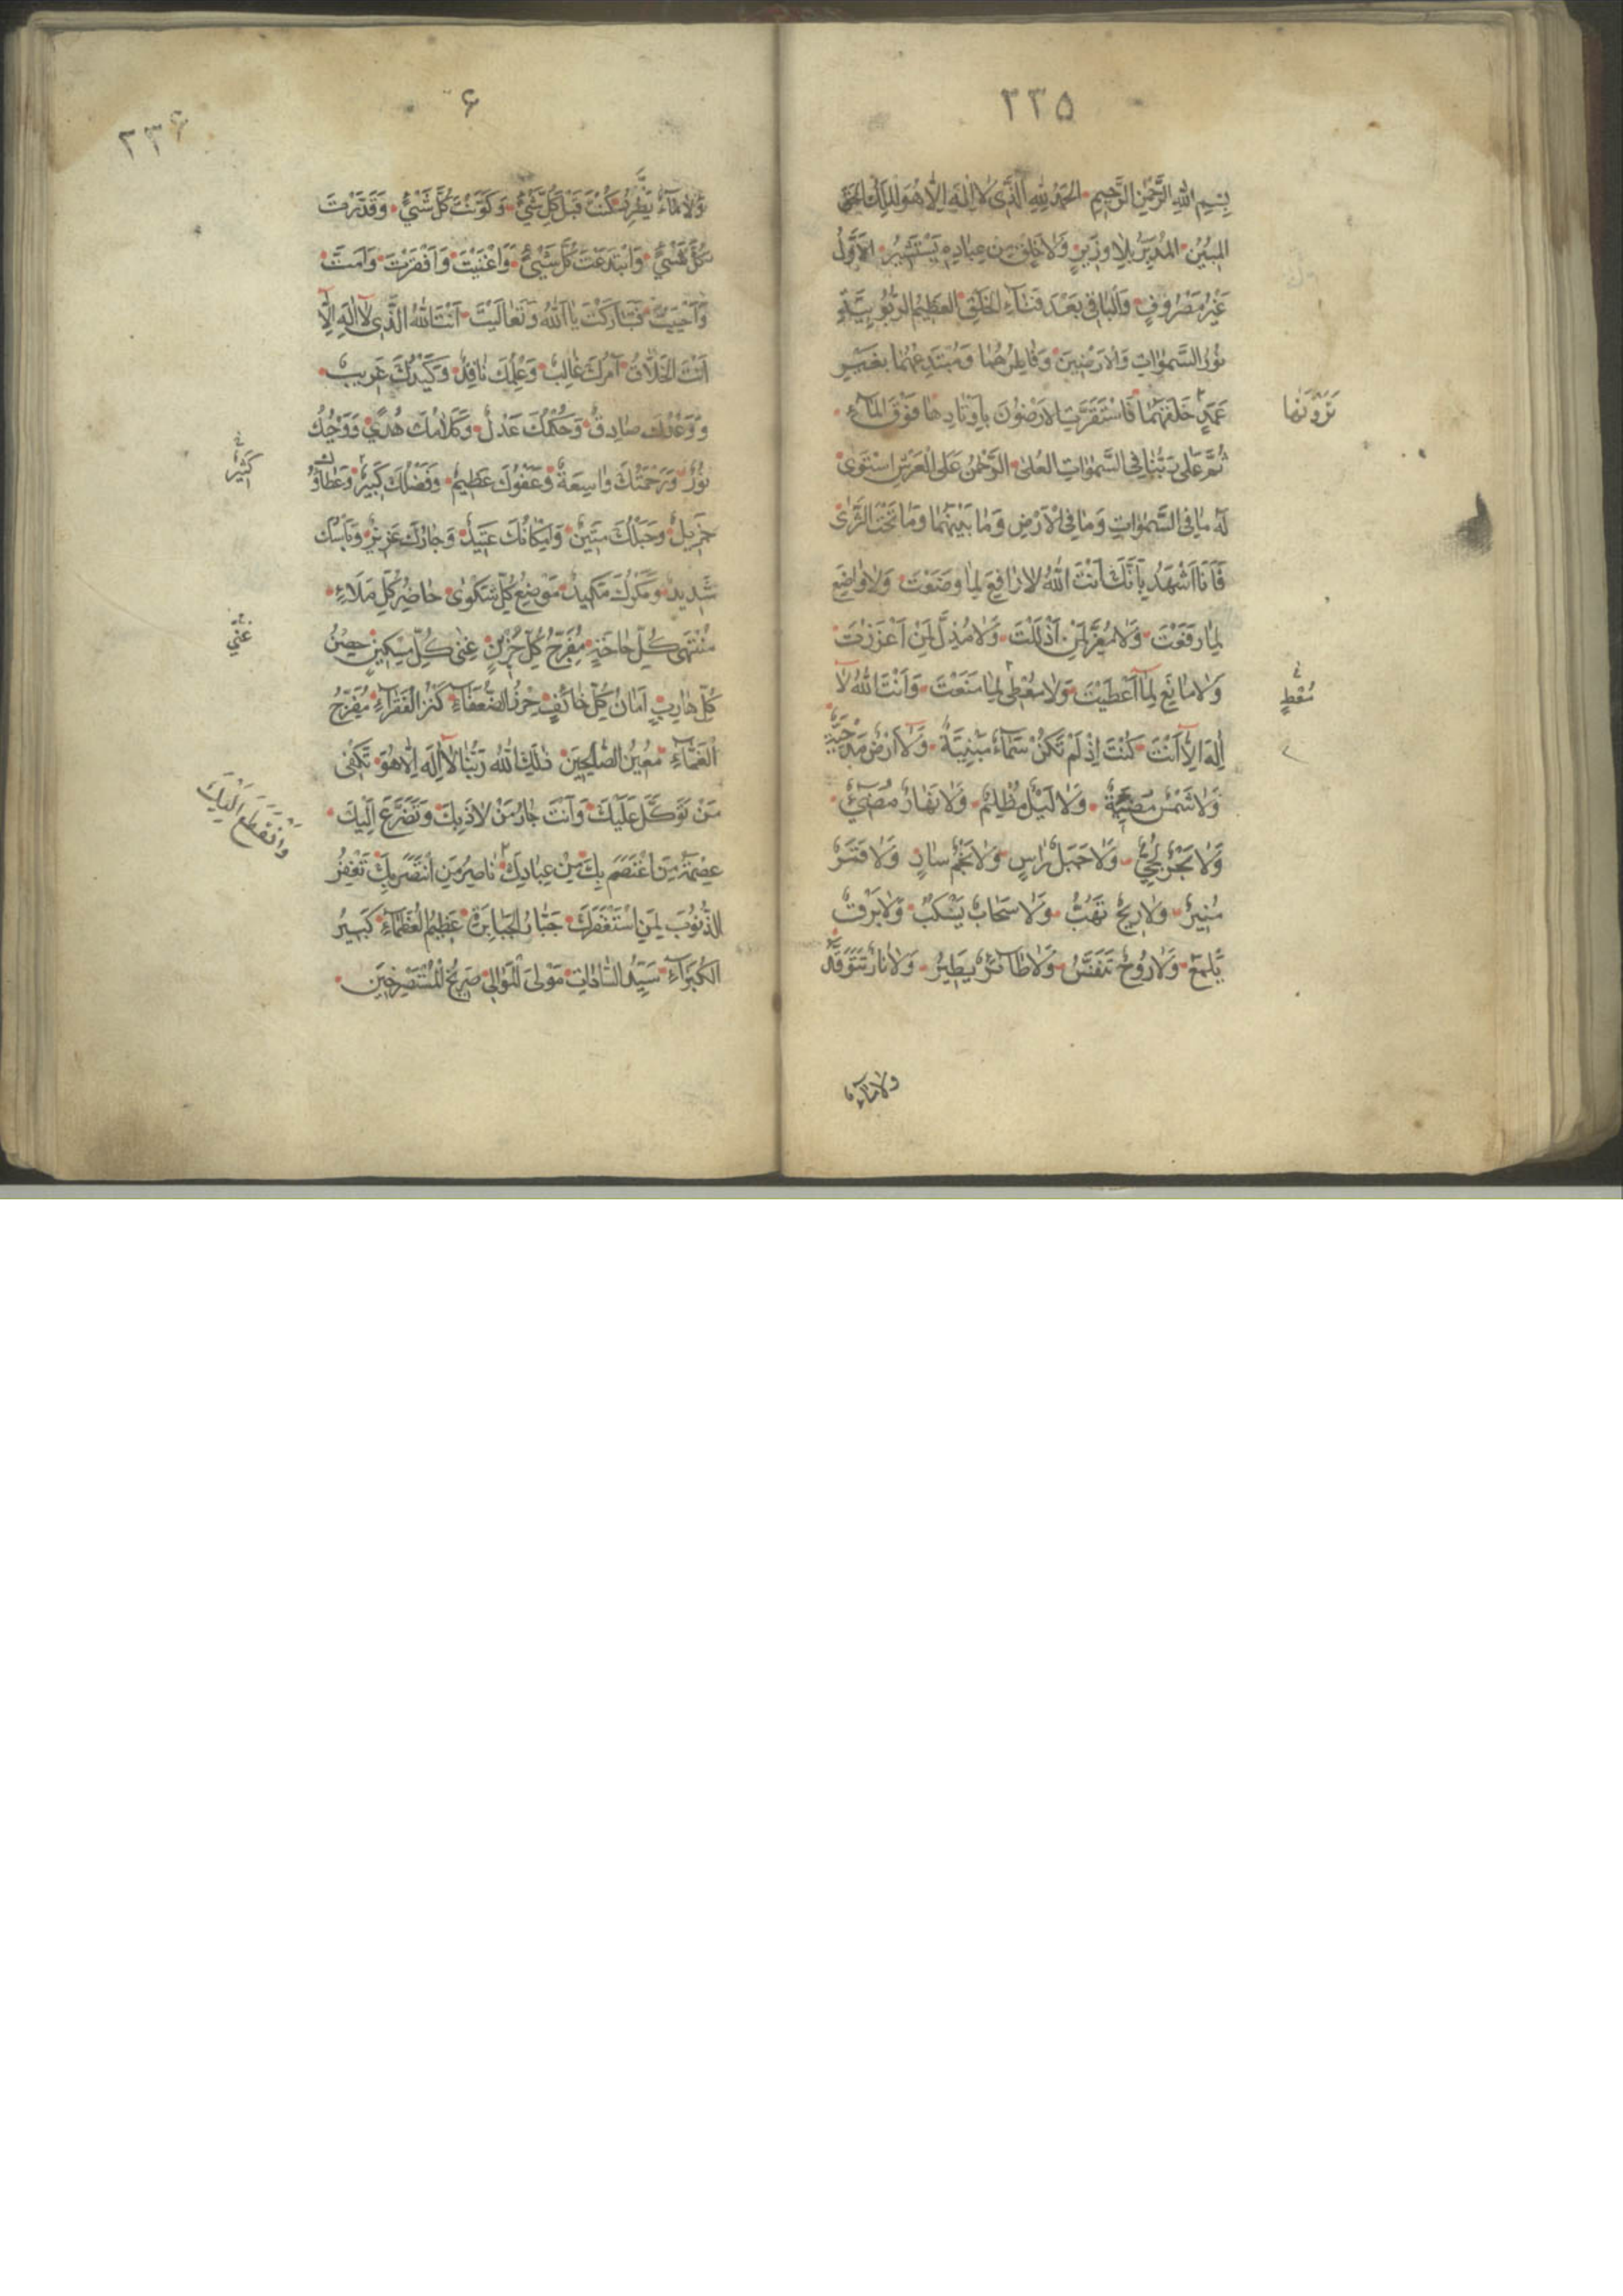 ٢٣٥
بِسْمِ اللهِ الرَّحْمٰنِ الرَّحِيمِ الحَمْدُ لِلّٰهِ الَّذِى لَا اِلٰهَ اِلَّا هُوَ المَلِكُ الحَقُّ
المُبِيْنُ المُدَبِّرُ بِلَا وَزِيْرٍ وَلَا خَلْقٍ مِنْ عِبَادِهِ يَسْتَشِيْرُ الاَوَّلُ
غَيْرُ مَصْرُوفٍ وَالْبَاقِى بَعْدَ فَنَآءِ الخَلْقِ العَظِيْمُ الرُّبُوبِيَّةِ
نُورُ السَّمٰوَاتِ وَالاَرَضِيْنَ وَفَاطِرُهُمَا وَمُبْتَدِعُهُمَا بِغَيْرِ
عَمَدٍ خَلَقَهُمَا فَاسْتَقَرَّتِ الاَرَضُونَ بِاَوْتَادِهَا فَوْقَ المَآءِ
تَرَوْنَهَا
ثُمَّ عَلَى رَبُّنَا فِى السَّمٰوَاتِ العُلٰى الرَّحْمٰنُ عَلَى العَرْشِ اسْتَوٰى
لَهُ مَا فِى السَّمٰوَاتِ وَمَا فِى الاَرْضِ وَمَا بَيْنَهُمَا وَمَا تَحْتَ الثَّرٰى
فَاَنَا اَشْهَدُ بِاَنَّكَ اَنْتَ اللهُ لَا رَافِعَ لِمَا وَضَعْتَ وَلَا وَاضِعَ
لِمَا رَفَعْتَ وَلَا مُعِزَّ لِمَنْ اَذْلَلْتَ وَلَا مُذِلَّ لِمَنْ اَعْزَزْتَ
وَلَا مَانِعَ لِمَآ اَعْطَيْتَ وَلَا مُعْطِىَ لِمَا مَنَعْتَ وَاَنْتَ اللهُ لَا
مُعْطٍ
اِلٰهَ اِلَّا اَنْتَ كُنْتَ اِذْ لَمْ تَكُنْ سَمَآءٌ مَبْنِيَّةٌ وَلَا اَرْضٌ مَدْحِيَّةٌ
وَلَا شَمْسٌ مُضِيْئَةٌ وَلَا لَيْلٌ مُظْلِمٌ وَلَا نَهَارٌ مُضِيْءٌ
وَلَا بَحْرٌ لُجِّيٌّ وَلَا جَبَلٌ رَاسٍ وَلَا نَجْمٌ سَارٍ وَلَا قَمَرٌ
مُنِيْرٌ وَلَا رِيْحٌ تَهُبُّ وَلَا سَحَابٌ يَسْكُبُ وَلَا بَرْقٌ
يَلْمَعُ وَلَا رُوحٌ تَنَفَّسُ وَلَا طَآئِرٌ يَطِيْرُ وَلَا نَارٌ تَتَوَقَّدُ
وَلَا مَآءٌ
٢٣۶
۶
وَلَا مَآءٌ يَطَّرِدُ كُنْتَ قَبْلَ كُلِّ شَيْءٍ وَكَوَّنْتَ كُلَّ شَيْءٍ وَقَدَرْتَ
كُلِّ شَيْءٍ وَابْتَدَعْتَ كُلَّ شَيْءٍ وَاَغْنَيْتَ وَاَفْقَرْتَ وَاَمَتَّ
وَاَحْيَيْتَ فَتَبَارَكْتَ يَا اَللهُ وَتَعَالَيْتَ اَنْتَ اللهُ الَّذِى لَآ اِلٰهَ اِلَّا
اَنْتَ الخَلَّاقُ اَمْرُكَ غَالِبٌ وَعِلْمُكَ نَافِذٌ وَكَيْدُكَ غَرِيبٌ
وَوَعْدُكَ صَادِقٌ وَحُكْمُكَ عَدْلٌ وَكَلَامُكَ هُدًى وَوَحْيُكَ
نُورٌ وَرَحْمَتُكَ وَاسِعَةٌ وَعَفْوُكَ عَظِيْمٌ وَفَضْلُكَ كَبِيْرٌ وَعَطَاؤُكَ
كَثِيْرٌ
جَزِيلٌ وَحَبْلُكَ مَتِيْنٌ وَاِمْكَانُكَ عَتِيْدٌ وَجَارُكَ عَزِيْزٌ وَبَأْسُكَ
شَدِيدٌ وَمَكْرُكَ مَكِيْدٌ مَوْضِعُ كُلِّ شَكْوٰى حَاضِرُ كُلِّ مَلَاءٍ
مُنْتَهٰى كُلِّ حَاجَةٍ مُفَرِّجُ كُلِّ حُزْنٍ غِنٰى كُلِّ مِسْكِينٍ حِصْنُ
غَنِيُّ
كُلِّ هَارِبٍ اَمَانُ كُلِّ خَائِفٍ حِرْزُ الضُّعَفَآءِ كَنْزُ الفُقَرَآءِ مُفَرِّجُ
الْغَمَّآءِ مُعِيْنُ الصَّالِحِيْنَ ذٰلِكَ اللهُ رَبُّنَا لَآ اِلٰهَ اِلَّا هُوَ تَكْفِى
مَنْ تَوَكَّلَ عَلَيْكَ وَاَنْتَ جَارُ مَنْ لَاذَ بِكَ وَتَضَرَّعَ اِلَيْكَ
وَانْقَطَعَ اِلَيْكَ
عِصْمَةُ مَنِ اعْتَصَمَ بِكَ مِنْ عِبَادِكَ نَاصِرُ مَنِ انْتَصَرَ بِكَ تَغْفِرُ
الذُّنُوبَ لِمَنِ اسْتَغْفَرَكَ جَبَّارُ الجَبَابِرَةِ عَظِيْمُ العُظَمَآءِ كَبِيْرُ
الكُبَرَآءِ سَيِّدُ السَّادَاتِ مَوْلَى المَوَالِى صَرِيْخُ المُسْتَصْرِخِيْنَ